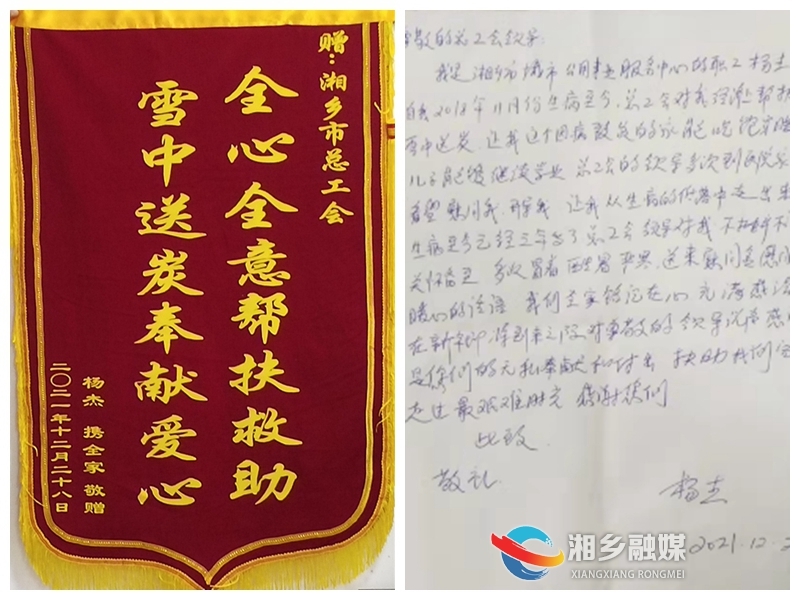 赠：湘乡市总工会
全心全意帮扶救助
雪中送炭奉献爱心
杨杰 携全家 敬赠
二〇二一年十二月二十八日
敬的总工会领导
我是湘乡市城市公用事业服务中心的职工杨杰
自我2018年11月份生病至今，总工会对我经济帮扶
雪中送炭，让我这个因病致贫的家庭吃饱穿暖
儿子能够继续学业 总工会的领导多次到医院
慰问我 开导我 让我从生病的低落中走出来
生病至今已经三年多了 总工会领导对我不抛弃不
关怀备至 多次冒着酷暑严寒，送来慰问金慰问
暖心的话语 我们全家铭记在心 充满感
在新年即将到来之际，对尊敬的领导说声感
是你们的无私奉献和付出 扶助我们
走过最艰难时光 感谢你们
此致
敬礼
杨杰
2021.12.2
湘乡融媒
XIANGXIANG RONGMEI